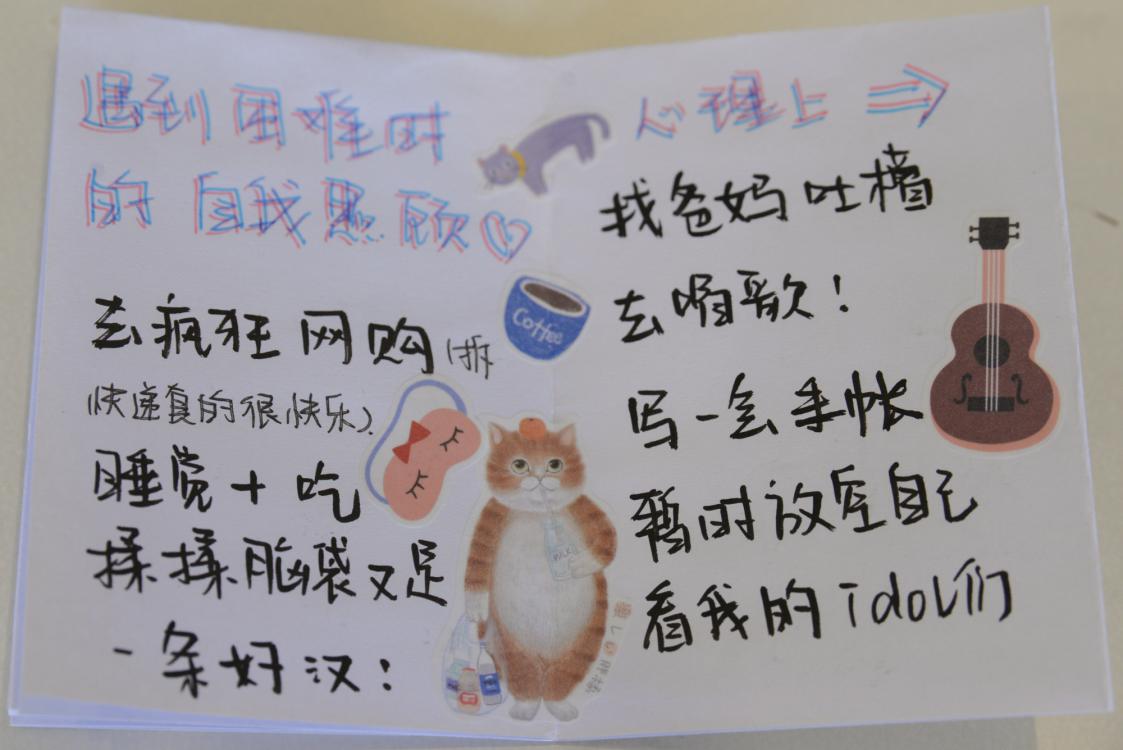 遇到困难时
的自我照顾
去疯狂网购(拆
快递真的很快乐)
睡觉+吃
揉揉脑袋又是
一条好汉!
Coffee
MILK
心理上
找爸妈吐槽
去唱歌!
写一会手帐
暂时放空自己
看我的idol们